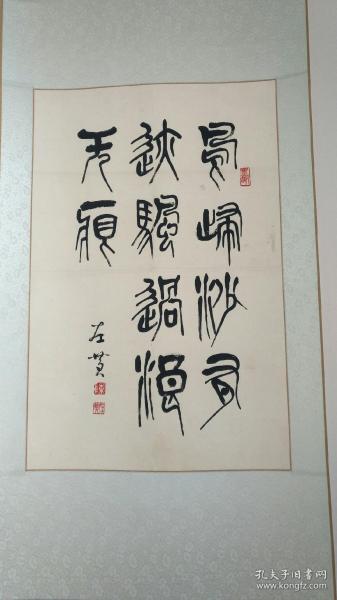 鳥歸沙有
迹颿過浪
无痕
孔夫子旧书网
www.kongfz.com